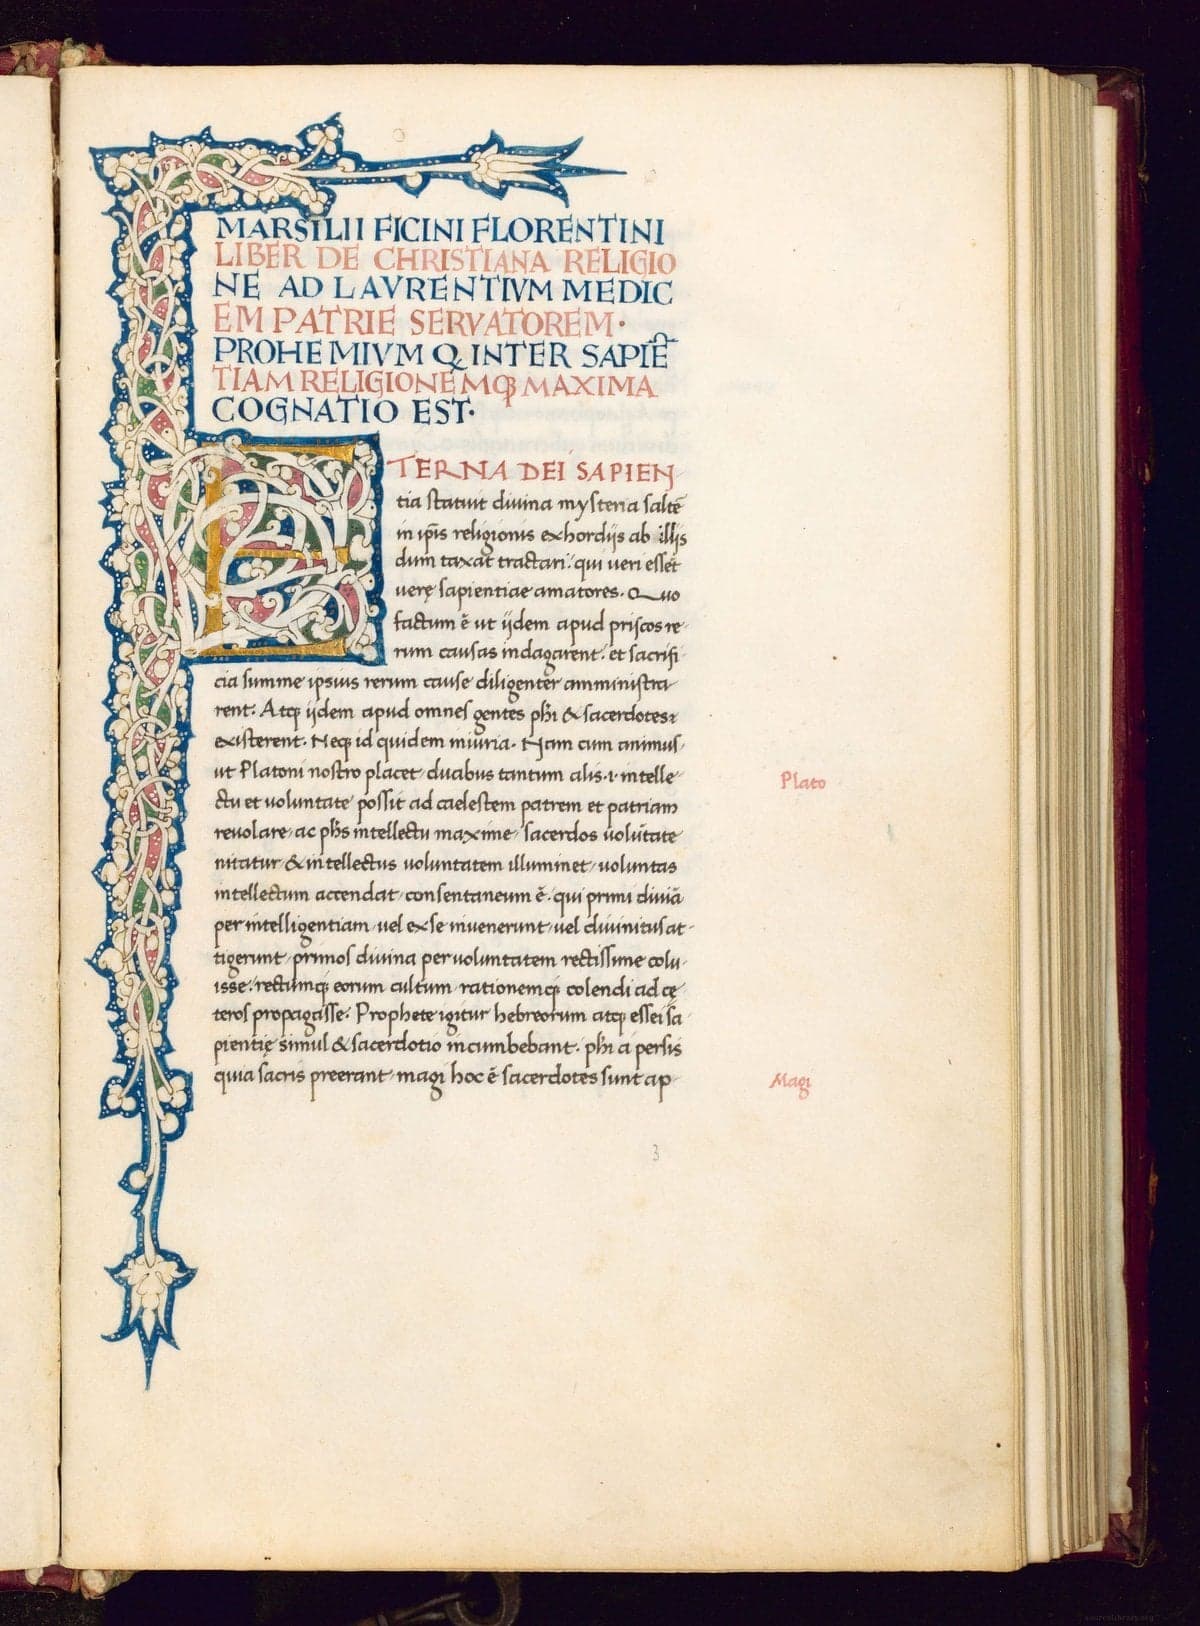 MARSILII FICINI FLORENTINI
LIBER DE CHRISTIANA RELIGIO
NE AD LAVRENTIVM MEDIC
EM PATRIE SERVATOREM·
PROHEMIVM Q INTER SAPIE᷒
TIAM RELIGIONEMQꝫ MAXIMA
COGNATIO EST·
ETERNA DEI SAPIEN
tia statuit diuina mysteria saltē
in ip̄is religionis exhordijs ab illis
dum taxat tractari: qui ueri essēt
uerę sapientiae amatores. Quo
factum ē ut ijdem apud priscos re-
rum causas indagarent: et sacrifi-
cia summe ipsius rerum cause diligenter amministra-
rent: Atqꝫ ijdem apud omnes gentes phi & sacerdotes
existerent. Neqꝫ id quidem iniuria. Nam cum animus,
ut Platoni nostro placet, duabus tantum alis .i. intelle-
ctu et uoluntate possit ad caelestem patrem et patriam
reuolare, ac phs intellectu maxime, sacerdos uolūtate
nitatur & intellectus uoluntatem illuminet, uoluntas
intellectum accendat, consentaneum ē: qui primi diuiā
per intelligentiam, uel ex se inuenerunt, uel diuinitus at-
tigerunt, primos diuina per uoluntatem rectissime colu-
isse: rectumqꝫ eorum cultum, rationemqꝫ colendi ad cę
teros propagasse. Prophete igitur hebreorum atqꝫ essei sa-
pientię simul & sacerdotio incumbebant. phi a persis
quia sacris preerant, magi hoc ē sacerdotes sunt ap-
Plato
Magi
3
sourcelibrary.org